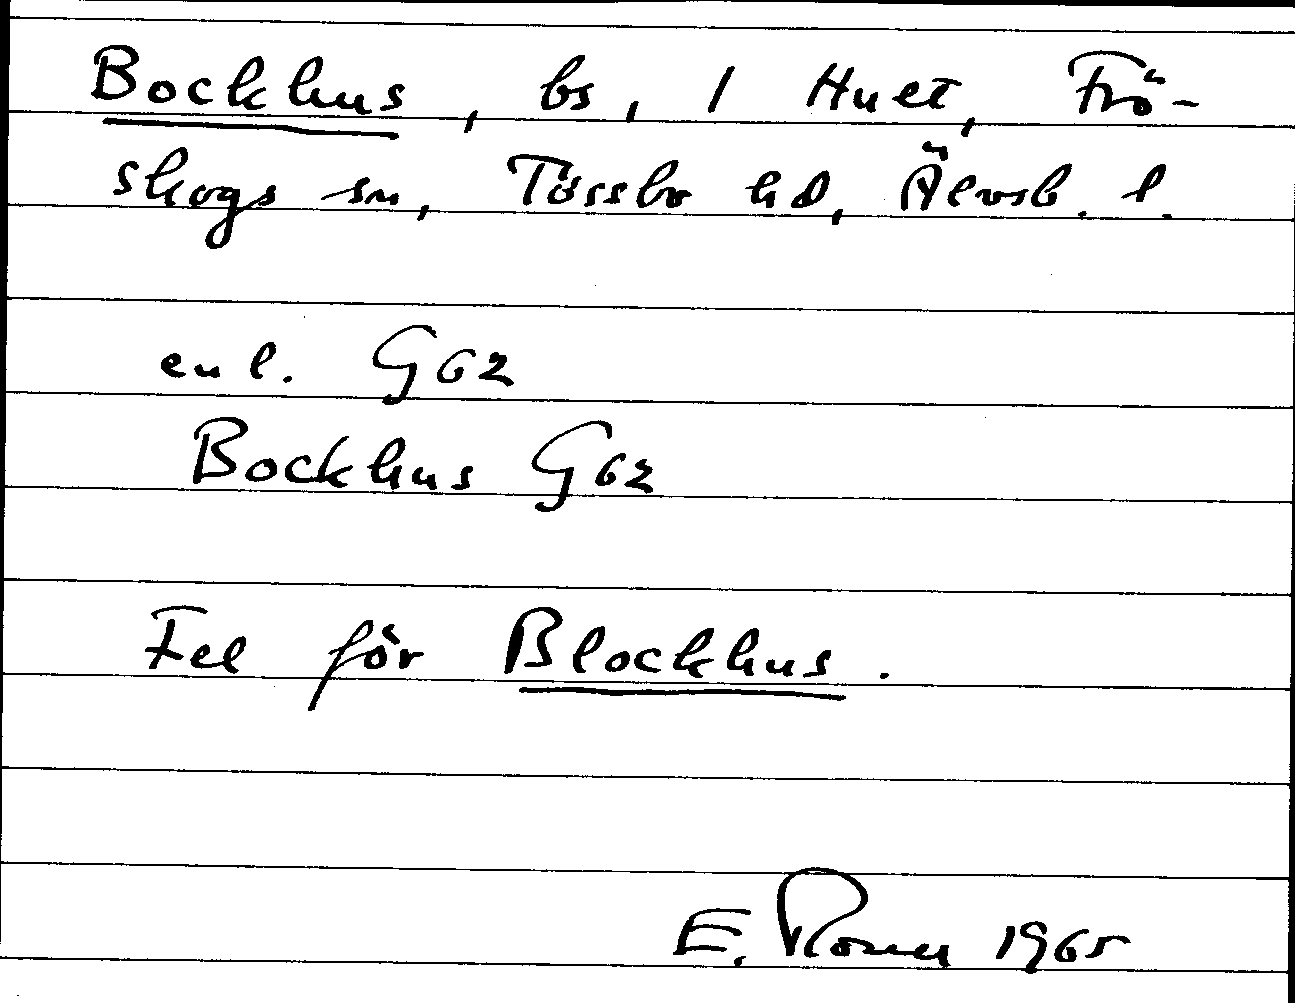 Bockhus, bs, 1 Huet, Frö-
skogs sn, Tössbo hd, Älvsb. l.
enl. G62
Bockhus G62
Fel för Blockhus.
E. 1965